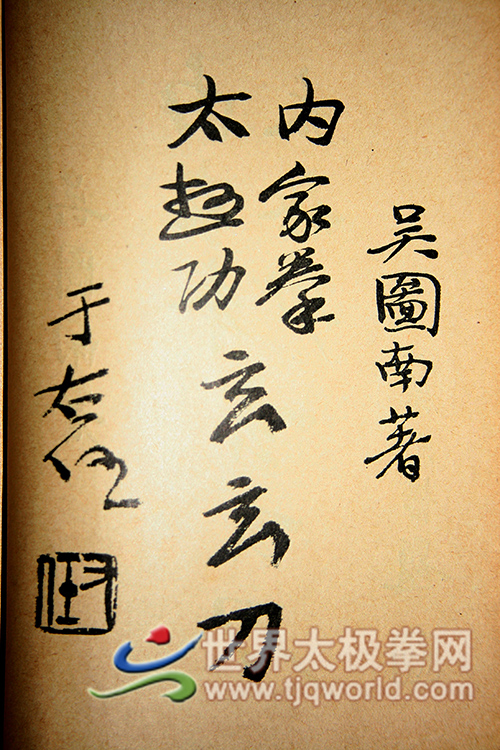 吴圖南著
内家拳
太極功
玄玄刀
于右任
世界太极拳网
www.tjqworld.com